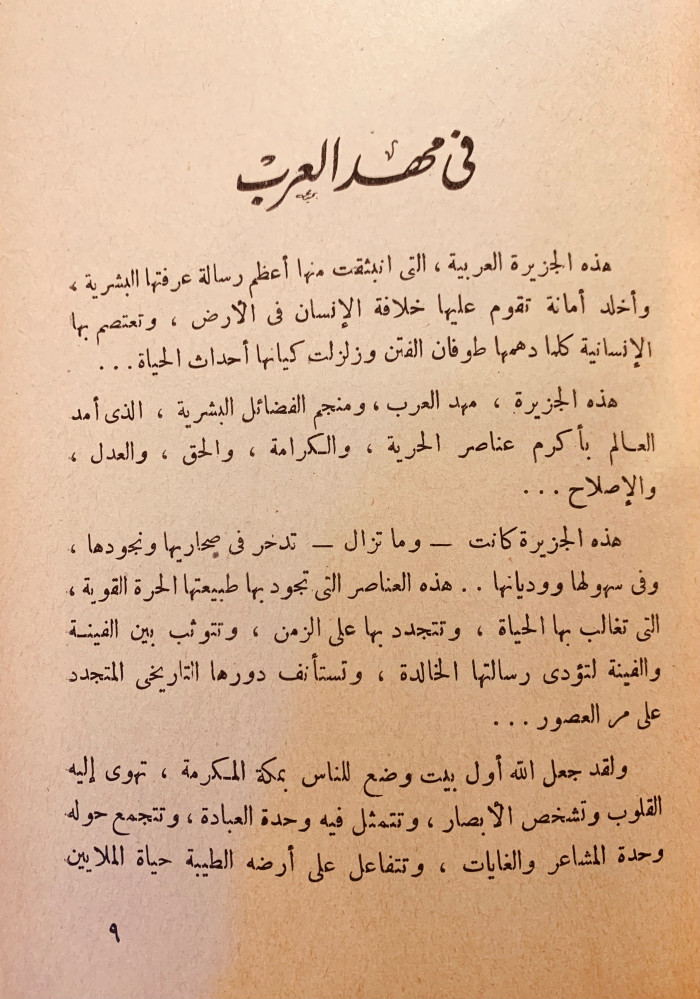 فى مهد العرب
هذه الجزيرة العربية ، التى انبثقت منها أعظم رسالة عرفتها البشرية ،
وأخلد أمانة تقوم عليها خلافة الإنسان فى الأرض ، وتعتصم بها
الإنسانية كلما دهمها طوفان الفتن وزلزلت كيانها أحداث الحياة...
هذه الجزيرة ، مهد العرب ، ومنجم الفضائل البشرية ، الذى أمد
العالم بأكرم عناصر الحرية ، والكرامة ، والحق ، والعدل ،
والإصلاح ...
هذه الجزيرة كانت — وما تزال — تدخر فى صحاريها ونجودها ،
وفى سهولها ووديانها .. هذه العناصر التى تجود بها طبيعتها الحرة القوية ،
التى تغالب بها الحياة ، وتتجدد بها على الزمن ، وتتوثب بين الفينة
والفينة لتؤدى رسالتها الخالدة ، وتستأنف دورها التاريخى المتجدد
على مر العصور ...
ولقد جعل الله أول بيت وضع للناس بمكة المكرمة ، تهوى إليه
القلوب وتشخص الأبصار ، وتتمثل فيه وحدة العبادة ، وتتجمع حوله
وحدة المشاعر والغايات ، وتتفاعل على أرضه الطيبة حياة الملايين
٩